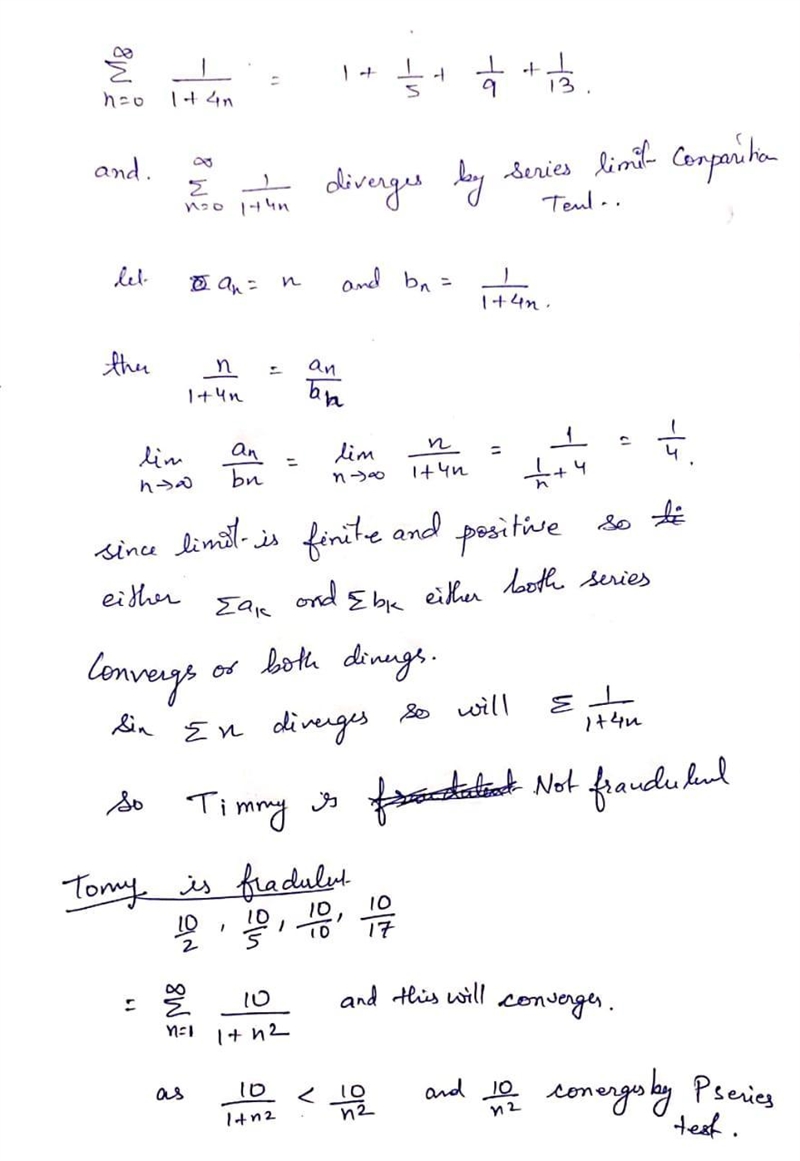 ∞ Σ n=0 1/(1+4n) = 1 + 1/5 + 1/9 + 1/13.
and. ∞ Σ n=0 1/(1+4n) diverges by series limit Comparition
Test..
let a_n = n and b_n = 1/(1+4n).
then n/(1+4n) = a_n/b_n
lim n→∞ a_n/b_n = lim n→∞ n/(1+4n) = 1/(1/n + 4) = 1/4.
since limit is finite and positive so
either Σa_k and Σb_k either both series
Convergs or both divergs.
Sin Σ n diverges so will Σ 1/(1+4n)
So Timmy is Not fraudulent
Tomy is fradulut
10/2, 10/5, 10/10, 10/17
= ∞ Σ n=1 10/(1+n²) and this will converges.
as 10/(1+n²) < 10/n² and 10/n² conerges by P series
test.